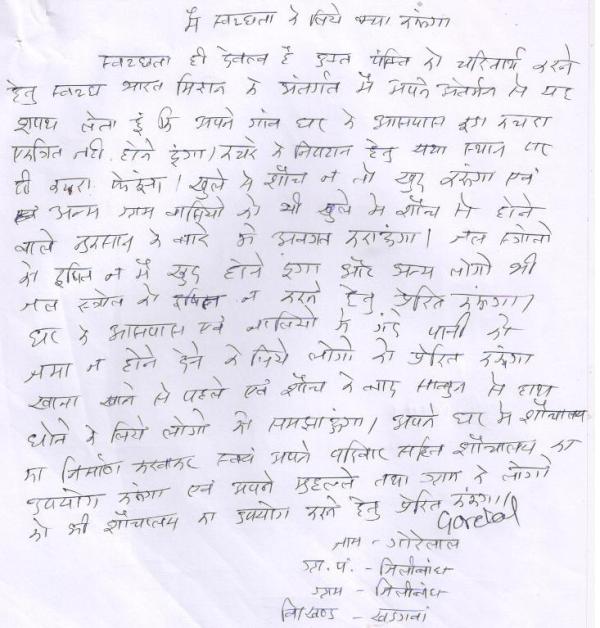 मैं स्वच्छता के लिये क्या करूंगा
स्वच्छता ही देवत्व है इस पंक्ति को चरितार्थ करने
हेतु स्वच्छ भारत मिशन के अंतर्गत मैं अपने अंतर्मन से यह
शपथ लेता हूं कि अपने गांव घर के आसपास कूड़ा कचरा
एकत्रित नही होने दूंगा। कचरे के निपटान हेतु यथा स्थान पर
ही कचरा फेकूंगा। खुले मे शौच न तो खुद करूंगा एवं
अन्य ग्राम वासियो को भी खुले मे शौच से होने
वाले नुकसान के बारे मे अवगत कराउंगा। जल स्त्रोतो
को दूषित न मैं खुद होने दूंगा और अन्य लोगो भी
जल स्त्रोत को दूषित न करने हेतु प्रेरित करूंगा।
घर के आसपास एवं नालियो मे गंदे पानी को
जमा न होने देने के लिये लोगो को प्रेरित करूंगा
खाना खाने से पहले एवं शौच के बाद साबुन से हाथ
धोने के लिये लोगो को समझाउंगा। अपने घर मे शौचालय
का निर्माण करवाकर स्वयं अपने परिवार सहित शौचालय का
उपयोग करूंगा एवं अपने मुहल्ले तथा ग्राम के लोगो
को भी शौचालय का उपयोग करने हेतु प्रेरित करूंगा।
Gorelal
नाम - गोरेलाल
ग्रा. पं. - जिलीबांध
ग्राम - जिलीबांध
वि.खण्ड - खडगवां